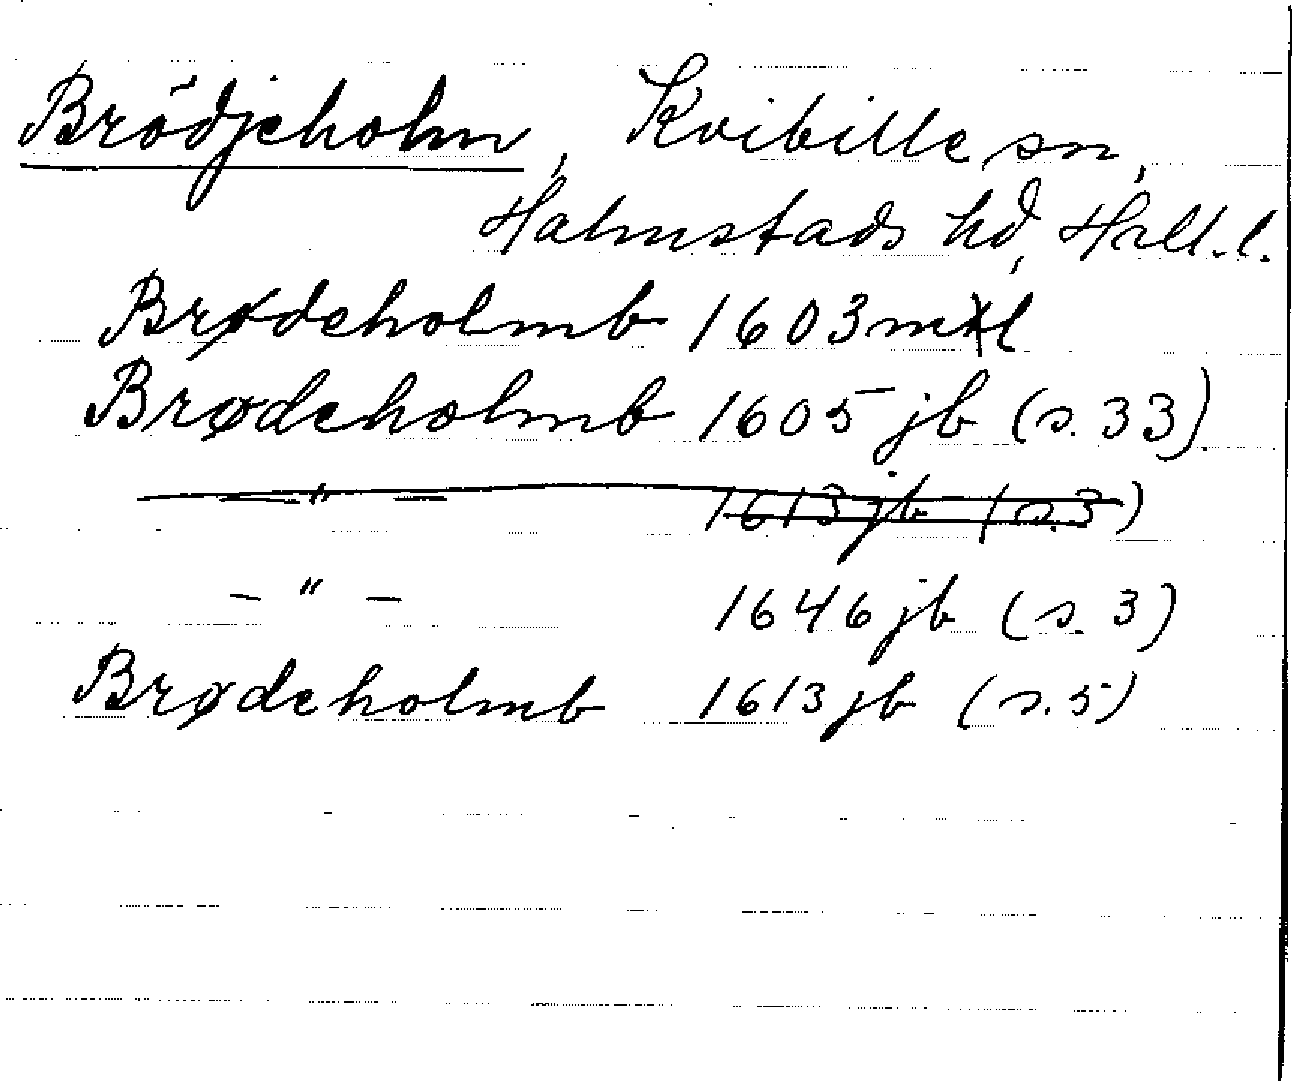 Brödjeholm, Kvibille sn,
Halmstads hd, Hall.l.
Brødeholmb 1603 mtl
Brødeholmb 1605 jb (s. 33)
— " — 1613 jb (s. 3)
— " — 1646 jb (s. 3)
Brødeholmb 1613 jb (s. 5)